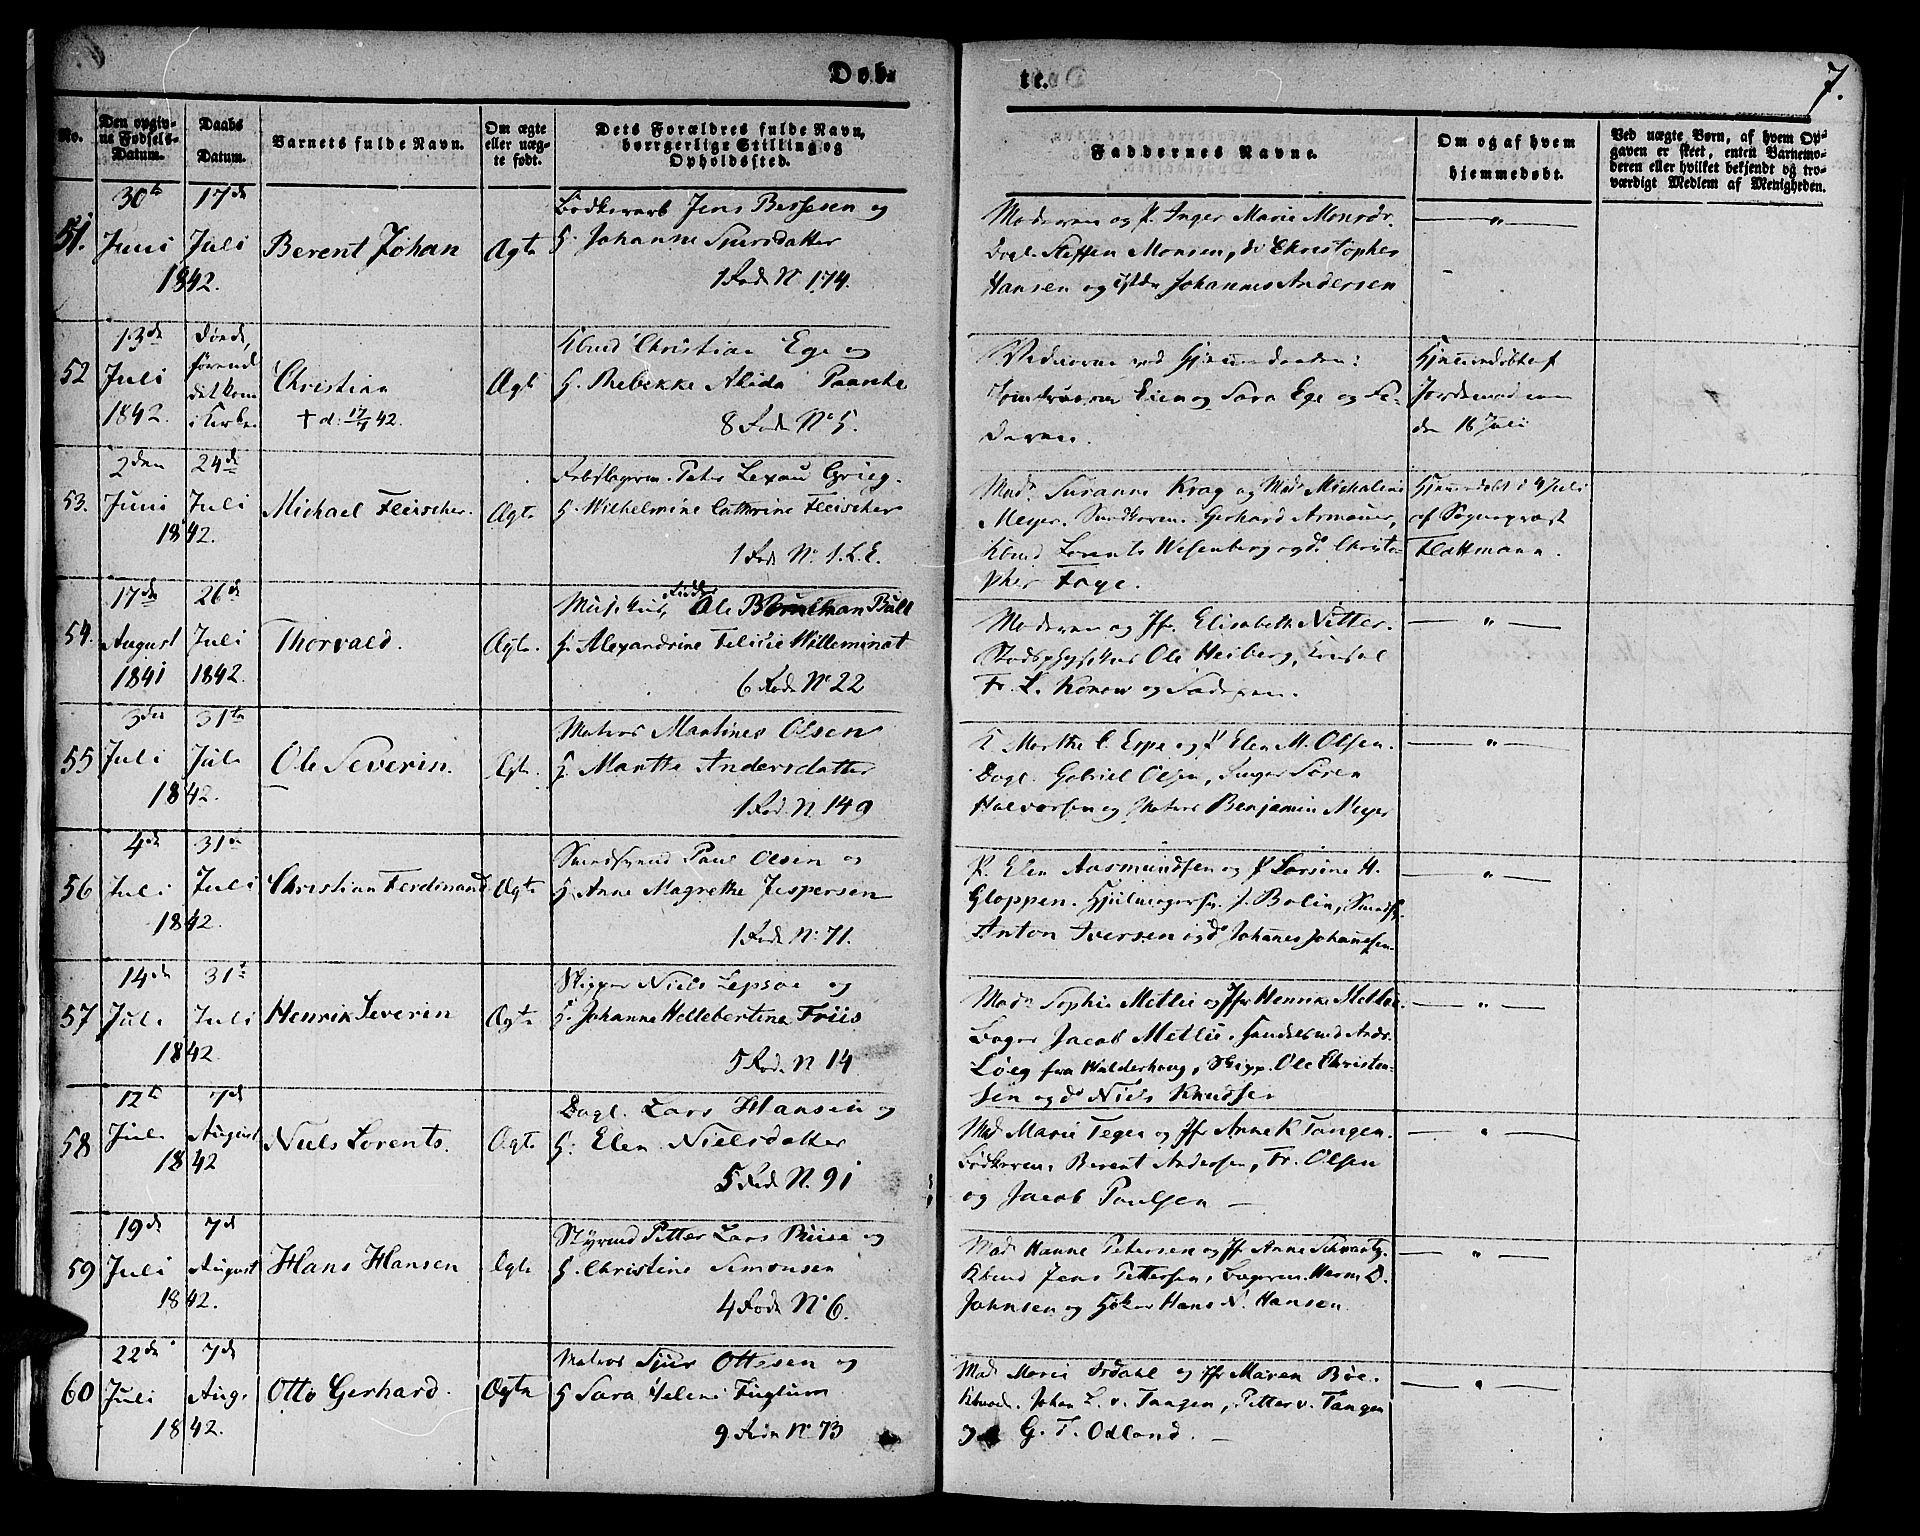 Døb-
te.
7.
No.
Den opgiv-
ne Fødsels-
Datum.
Daabs
Datum.
Barnets fulde Navn.
Om ægte
eller uæg-
te født.
Dets Forældres fulde Navn,
borgerlige Stilling og
Opholdssted.
Faddernes Navne.
Om og af hvem
hjemmedøbt.
Ved uægte Børn, af hvem Op-
gaven er skeet, enten Barnemo-
deren eller hvilket bekjendt og tro-
værdigt Medlem af Menigheden.
51.
30te Juni 1842.
17de Juli
Berent Johan
Ægte
Jens Bessesen og
H. Johanne Sjursdatter
1 Rode No 174.
Moderen og P. Inger Marie Monsdr.
Dagl. Steffen Monsen, do Christopher
Hansen og Johannes Andersen
— " —
52
13de Juli 1842.
Døde,
førend
det kom
i Kirken
Christian
+ d: 17/7 42.
Ægte
Kbmd Christian Ege og
H. Rebekke Alida Paasche
8 Rode No 5.
Ege og Fa-
deren.
Hjemmedøbt af
Jordemoderen
den 16 Juli
53.
2den Juni 1842.
24de Juli
Michael Fleischer.
Ægte
Peter Lexau Grieg.
H. Wilhelmine Cathrine Fleischer
1 Rode No 1. L. E.
Mad. Susanne Krag og Mad. Michaline
Meyer. Gerhard Armauer,
Kbmd Lorents Wesenberg og do Christo-
pher Faye.
Hjemmedøbt d 4 Juli
af Sogneprest
Flottmann.
54.
17de August 1841
26de Juli 1842.
Thorvald.
Ægte.
Musikus, Ole Bull
H. Alexandrine Felicie Willeminat
6 Rode No 22
Moderen og Jfr. Elisabeth Nitter.
Stadsphysikus Ole Heiberg, Konsul
Fr. L. Konow og Faderen.
— " —
55
3die Juli 1842.
31te Juli
Ole Severin.
Ægte.
Matros Martines Olsen
H. Marthe Andersdatter
1 Rod. N 149
K Marthe C. Espe og P Elen M. Olsen.
Dagl. Gabriel Olsen, Søren
Halvorsen og Matros Benjamin Meyer
— " —
56
4de Juli 1842.
31te Juli
Christian Ferdinand
Ægte
Smedsvend Paul Olsen og
H. Anne Magrethe Jespersen
1 Rode No 71.
P. Elen Aasmundsen og P Larsine H.
Gloppen. J. Bolin, Smeds.
Anton Iversen og do Johannes Johannesen.
— " —
57
14de Juli 1842.
31te Juli
Henrik Severin
Ægte
Skipper Niels Lepsøe og
H. Johanne Hellebertine Friis
5 Rode N 14
Mad. Sophie Mellie og Jfr Henrike Mellie.
Bager Jacob Mellie. Handelsmd Ands.
Løeg fra Walderhaug, Skipp. Ole Christen-
sen og do Niels Knudsen
— " —
58
12te Juli 1842
7de August
Niels Lorents.
Ægte
Dagl. Lars Hansen og
H. Elen Nielsdatter
5 Rode N. 91
Mad Marie Teger og Jfr Anne K Tangen.
Bødkeren. Berent Andersen, Fr. Olsen
og Jacob Paulsen —
— " —
59
19de Juli 1842.
7de August
Hans Hansen
Ægte
Styrmd Petter Lars Riise og
H. Christine Simonsen
4 Rode No 6.
Mad. Hanne Petersen og Jfr Anne Schwartz.
Kbmd Jens Pettersen, Herm. D.
Johnsen og Høker Hans N. Hansen.
— " —
60
22de Juli 1842.
7de Aug.
Otto Gerhard.
Ægte
Matros Sjur Ottesen og
H Sara Helene Fuglum
9 Rode No 73
Mad Marie Ordahl og Jfr Maren Bøe.
Kbmd. Johan L. v. Tangen, Petter v. Tangen
og G. T. Odland. —
— " —